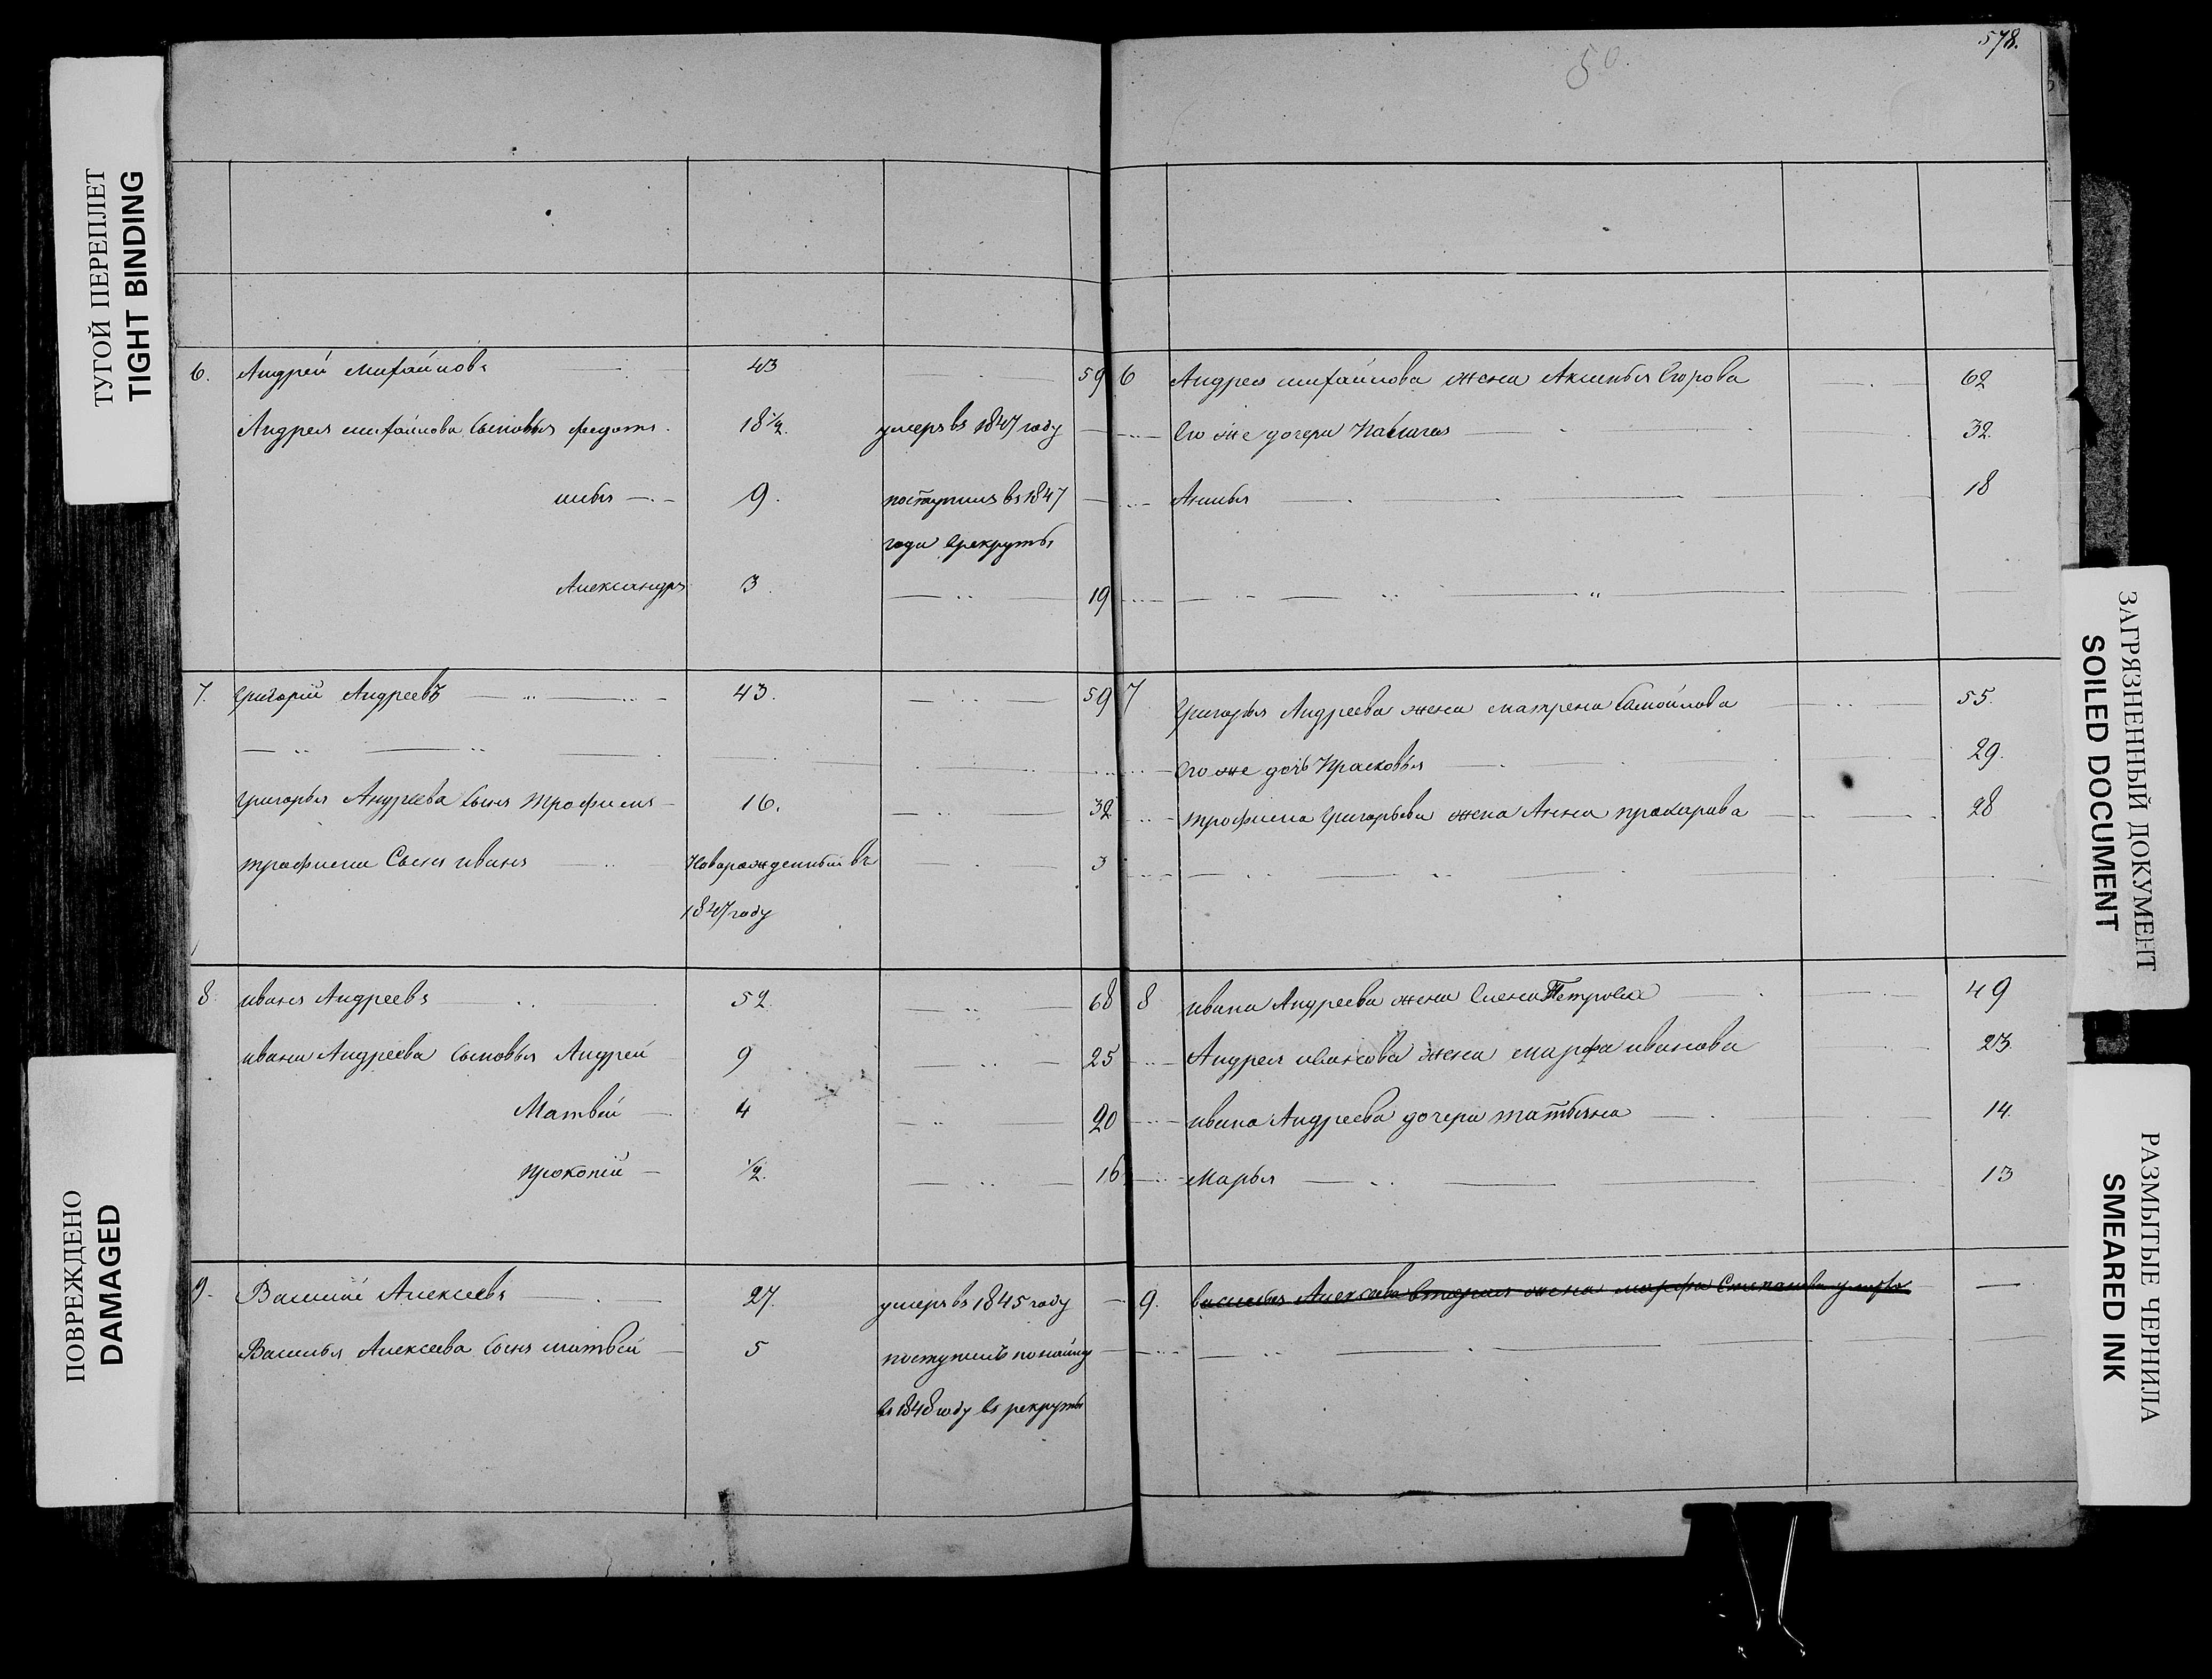 578.
50.
ТУГОЙ ПЕРЕПЛЕТ
TIGHT BINDING
ПОВРЕЖДЕНО
DAMAGED
6. Андрей михайловъ 43 59
Андрея михайлова сыновья федотъ 18 1/2. умеръ въ 1847 году
9. поступилъ въ 1847
года врекруты
Александръ 3. 19
7. Григорий Андреевъ 43. 59
Григорья Андреева сынъ трофимъ 16. 32
трофима Сынъ иванъ Новорожденный въ 3
1847 году
8. иванъ Андреевъ 52 68
ивана Андреева сыновья Андрей 9 25
Матвей 4 20
прокопий 1/2. 16
9. Василий Алексеевъ 27. умеръ въ 1845 году
Василья Алексеева сынъ матвей 5 поступилъ понайму
въ 1848 году въ рекруты
6 Андрея михайлова жена Аксинья Егорова 62
Его же дочери 32.
18
7 Григорья Андреева жена матрена самойлова 55.
Его же дочь Прасковья 29.
трофима Григорьева жена Анна 28
8 ивана Андреева жена Елена Петрова 49
Андрея иванова жена марфа иванова 23.
ивана Андреева дочери татьяна 14.
Марья 13
9. васильья Алексеева вторая жена марфа Степанова умерла
ЗАГРЯЗНЕННЫЙ ДОКУМЕНТ
SOILED DOCUMENT
РАЗМЫТЫЕ ЧЕРНИЛА
SMEARED INK